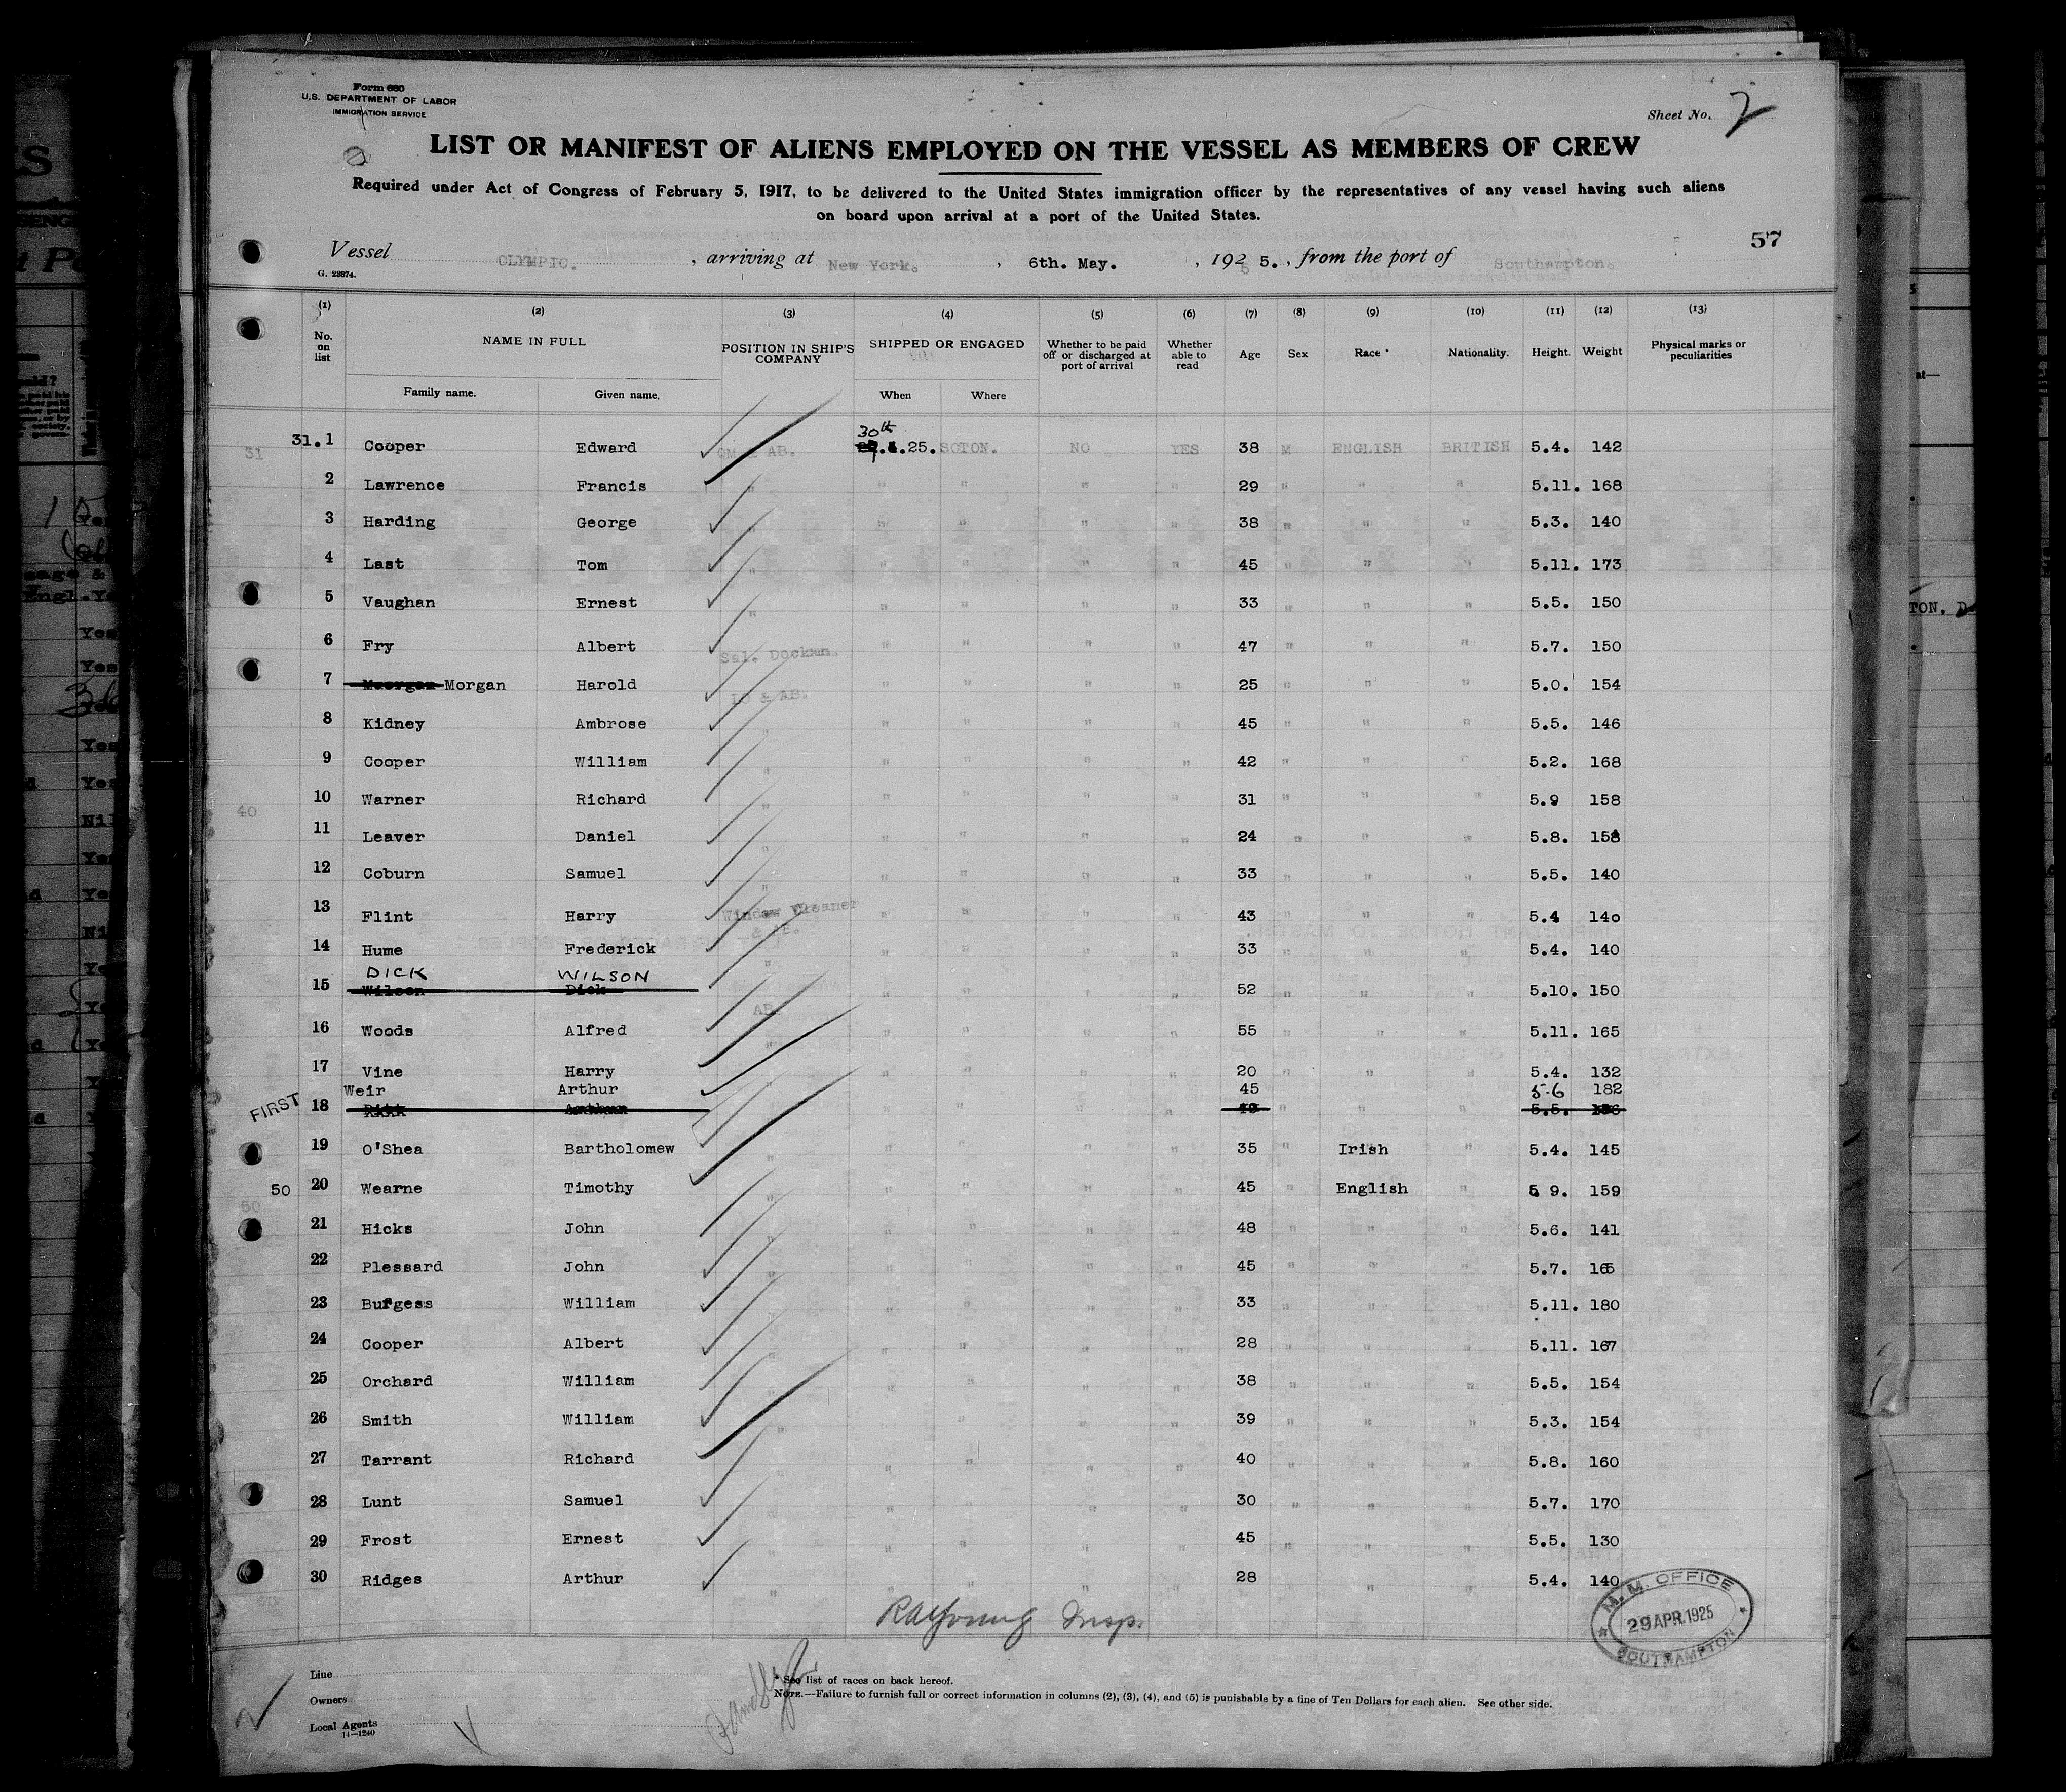 Form 680
U.S. DEPARTMENT OF LABOR
IMMIGRATION SERVICE
Sheet No. 2
LIST OR MANIFEST OF ALIENS EMPLOYED ON THE VESSEL AS MEMBERS OF CREW
Required under Act of Congress of February 5, 1917, to be delivered to the United States immigration officer by the representatives of any vessel having such aliens
on board upon arrival at a port of the United States.
57
Vessel OLYMPIC. , arriving at New York. , 6th. May. , 192 5. , from the port of Southampton.
G. 23874.
(1) (2) (3) (4) (5) (6) (7) (8) (9) (10) (11) (12) (13)
No. on list NAME IN FULL POSITION IN SHIP'S COMPANY SHIPPED OR ENGAGED Whether to be paid off or discharged at port of arrival Whether able to read Age Sex Race * Nationality. Height. Weight Physical marks or peculiarities
Family name. Given name. When Where
30th
31 31.1 Cooper Edward AB. .25. SOTON. NO YES 38 M ENGLISH BRITISH 5.4. 142
2 Lawrence Francis " " " " " 29 " " " 5.11. 168
3 Harding George " " " " " 38 " " " 5.3. 140
4 Last Tom " " " " " 45 " " " 5.11. 173
5 Vaughan Ernest " " " " " 33 " " " 5.5. 150
6 Fry Albert Sal. Dockman. " " " " 47 " " " 5.7. 150
7 Morgan Harold & AB. " " " " 25 " " " 5.0. 154
8 Kidney Ambrose " " " " 45 " " " 5.5. 146
9 Cooper William " " " " " 42 " " " 5.2. 168
40 10 Warner Richard " " " " " 31 " " " 5.9 158
11 Leaver Daniel " " " " " 24 " " " 5.8. 158
12 Coburn Samuel " " " " " 33 " " " 5.5. 140
13 Flint Harry Window Cleaner & AB. " " " " 43 " " " 5.4 140
14 Hume Frederick " " " " " 33 " " " 5.4. 140
DICK WILSON
15 Wilson Dick " " " " 52 " " " 5.10. 150
16 Woods Alfred AB. " " " " 55 " " " 5.11. 165
17 Vine Harry " " " " " 20 " " " 5.4. 132
Weir Arthur 45 5.6 182
FIRST 18 " " " " " " " 5.5.
19 O'Shea Bartholomew " " " " " 35 " Irish " 5.4. 145
50 20 Wearne Timothy " " " " " 45 " English " 5 9. 159
50
21 Hicks John " " " " " 48 " " " 5.6. 141
22 Plessard John " " " " " 45 " " " 5.7. 165
23 Burgess William " " " " " 33 " " " 5.11. 180
24 Cooper Albert " " " " " 28 " " " 5.11. 167
25 Orchard William " " " " " 38 " " " 5.5. 154
26 Smith William " " " " " 39 " " " 5.3. 154
27 Tarrant Richard " " " " " 40 " " " 5.8. 160
28 Lunt Samuel " " " " " 30 " " " 5.7. 170
29 Frost Ernest " " " " " 45 " " " 5.5. 130
30 Ridges Arthur " " " " " 28 " " " 5.4. 140
60
Insp.
M.M. OFFICE
29 APR.1925
SOUTHAMPTON
Line
Owners
Local Agents
14—1240
* See list of races on back hereof.
NOTE.—Failure to furnish full or correct information in columns (2), (3), (4), and (5) is punishable by a fine of Ten Dollars for each alien. See other side.